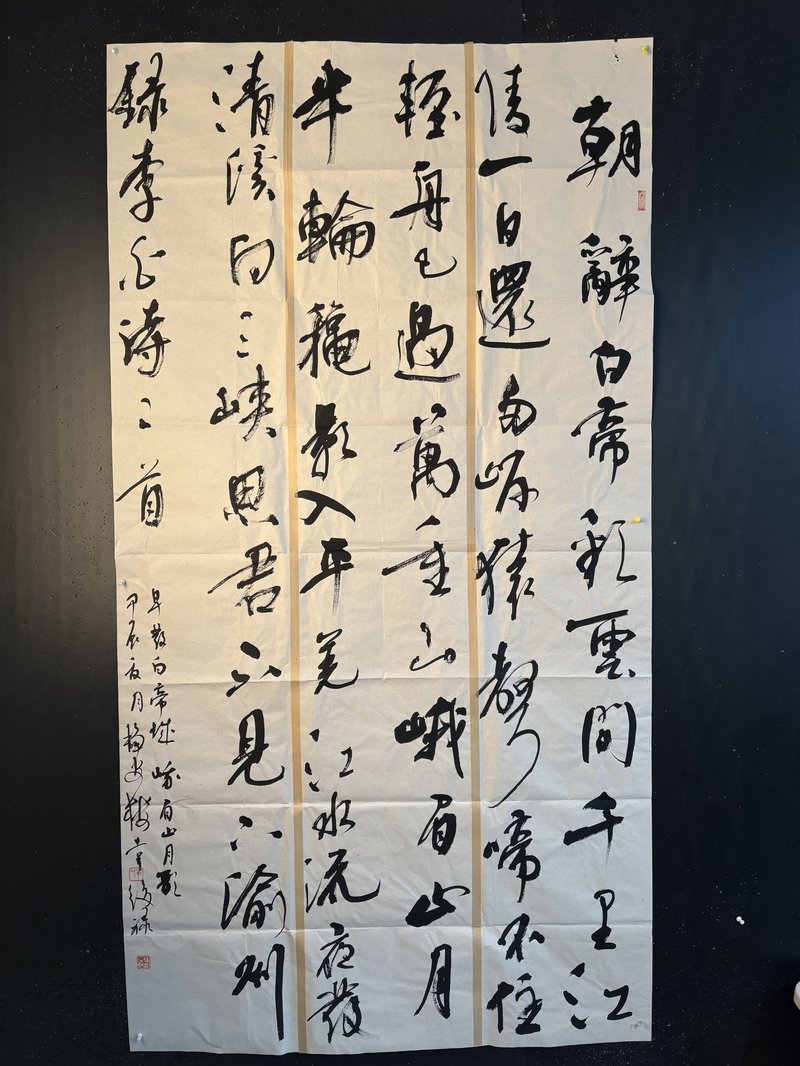 朝辭白帝彩雲間千里江
陵一日還兩岸猿聲啼不住
輕舟已過萬重山峨眉山月
半輪秋影入平羌江水流夜發
清溪向三峽思君不見下渝州
録李白詩二首
早發白帝城峨眉山月歌
甲辰夏月